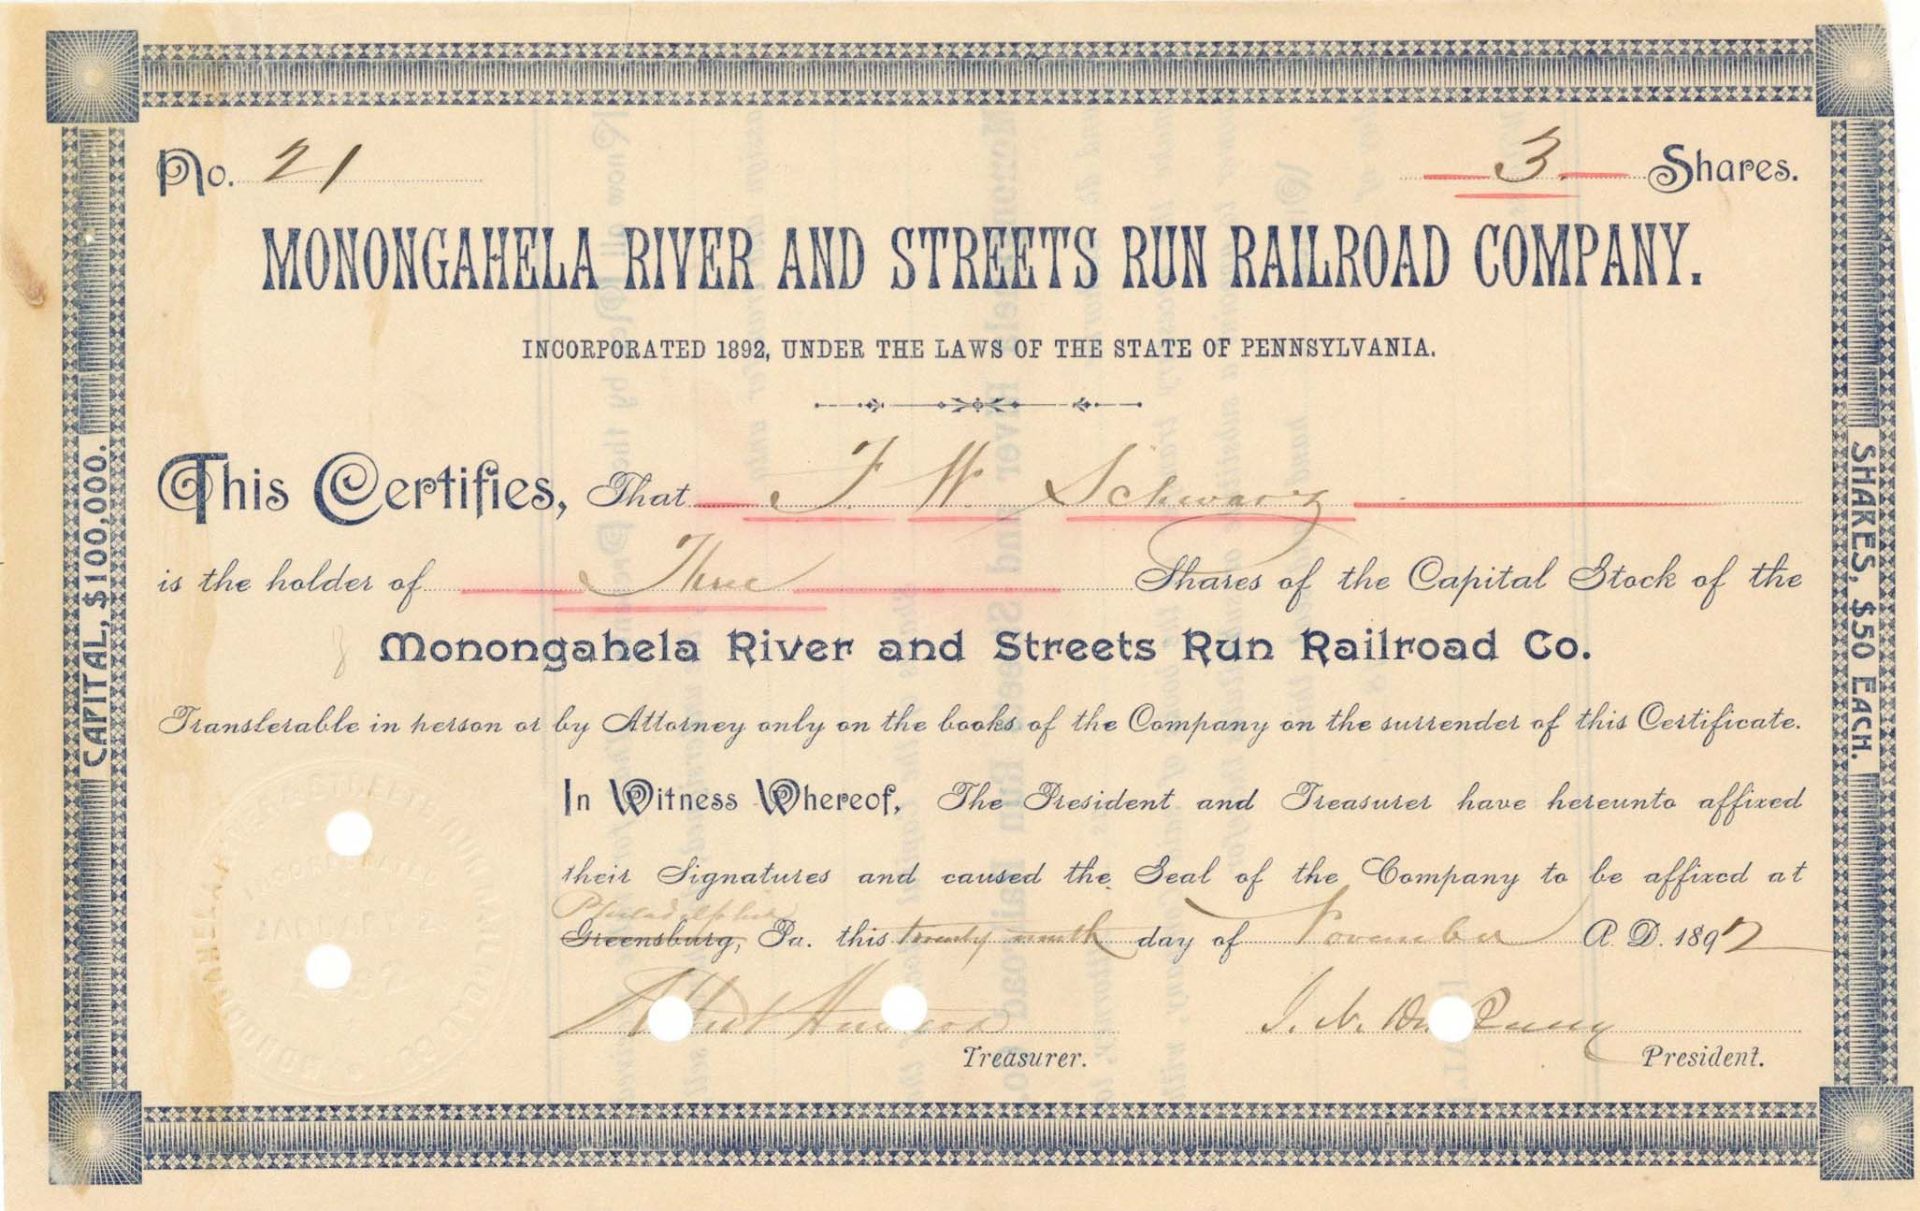 No. 21
3 Shares.
MONONGAHELA RIVER AND STREETS RUN RAILROAD COMPANY.
INCORPORATED 1892, UNDER THE LAWS OF THE STATE OF PENNSYLVANIA.
This Certifies, That F. W. Schwarz
is the holder of Three Shares of the Capital Stock of the
Monongahela River and Streets Run Railroad Co.
Transferable in person or by Attorney only on the books of the Company on the surrender of this Certificate.
In Witness Whereof, The President and Treasurer have hereunto affixed
their Signatures and caused the Seal of the Company to be affixed at
Philadelphia
Greensburg, Pa. this twenty ninth day of November A. D. 1892
Treasurer.
President.
CAPITAL, $100,000.
SHARES, $50 EACH.